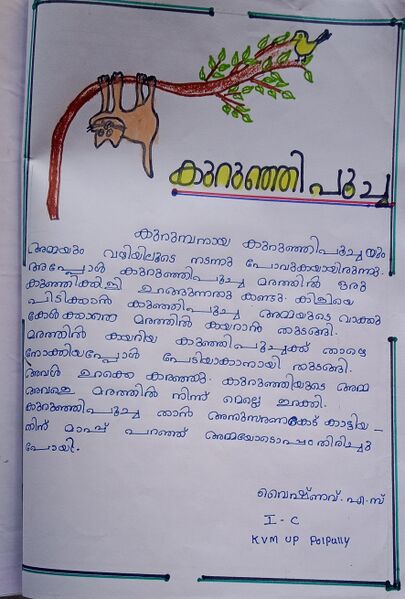 കുറുഞ്ഞി പൂച്ച
കുറുമ്പനായ കുറുഞ്ഞിപൂച്ചയും
അമ്മയും വഴിയിലൂടെ നടന്നു പോവുകയായിരുന്നു.
അപ്പോൾ കുറുഞ്ഞിപൂച്ച മരത്തിൽ ഒരു
കുഞ്ഞിക്കിളി ഉറങ്ങുന്നതു കണ്ടു. കിളിയെ
പിടിക്കാൻ കുഞ്ഞിപൂച്ച അമ്മയുടെ വാക്കു
കേൾക്കാതെ മരത്തിൽ കയറാൻ തുടങ്ങി.
മരത്തിൽ കയറിയ കുഞ്ഞിപൂച്ചക്ക് താഴെ
നോക്കിയപ്പോൾ പേടിയാകാനായി തുടങ്ങി.
അവൾ ഉറക്കെ കരഞ്ഞു. കുറുഞ്ഞിയുടെ അമ്മ
അവളെ മരത്തിൽ നിന്ന് മെല്ലെ ഇറക്കി.
കുറുഞ്ഞിപൂച്ച താൻ അനുസരണകേട് കാട്ടിയ-
തിന് മാപ്പ് പറഞ്ഞ് അമ്മയോടൊപ്പം തിരിച്ചു
പോയി.
വൈഷ്ണവ്. എ. സ്
I - C
KVM UP Polpully